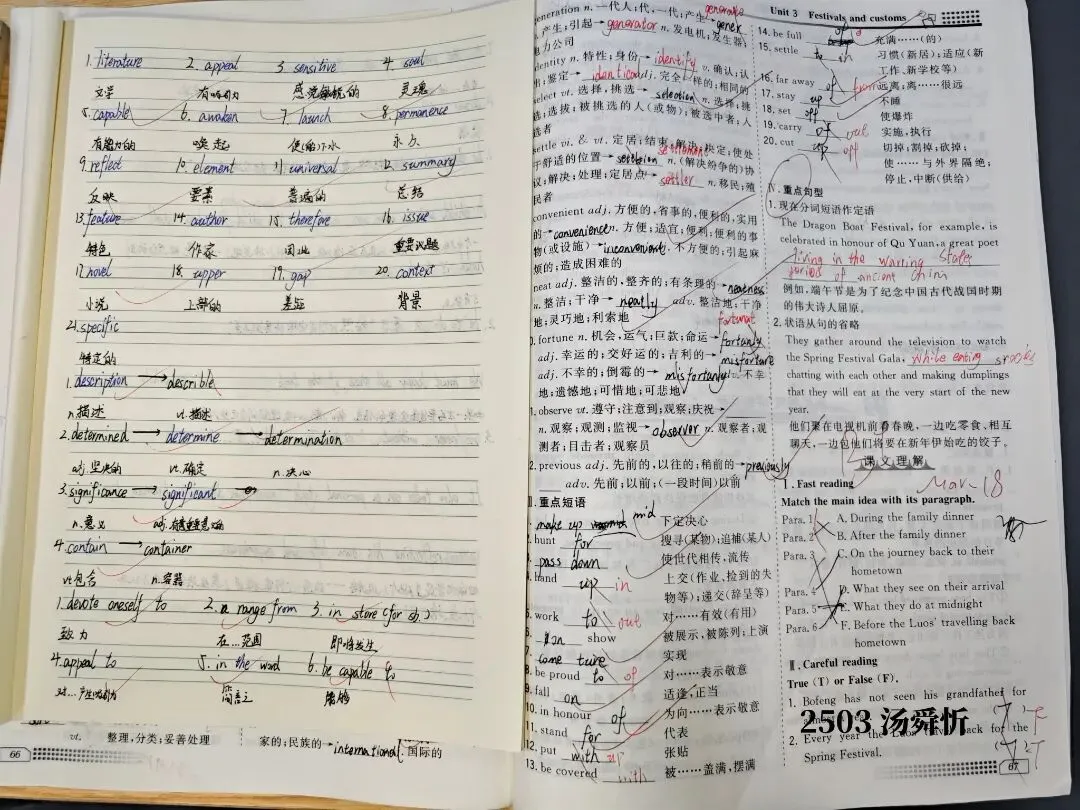 1. literature 2. appeal 3 sensitive 4 soul
文学 有吸引力 感觉敏锐的 灵魂
5. capable 6. awaken 7. launch 8. permanence
有能力的 唤起 使(船)下水 永久
9. reflect 10. element 11. universal 12. summary
反映 要素 普遍的 总结
13. feature 14. author 15. therefore 16. issue
特色 作家 因此 重要议题
17. novel 18. upper 19. gap 20. context
小说 上部的 差距 背景
21. specific
特定的
1. description → describle
n. 描述 vt. 描述
2. determined → determine → determination
adj. 坚决的 vt. 确定 n. 决心
3. significance → significant
n. 意义 adj.
4. contain → container
vt 包含 n. 容器
1. devote oneself to 2. a range from 3. in store (for sb.)
致力 在…范围 即将发生
4. appeal to 5. in the word 6. be capable to
对…产生吸引力 简言之 能够
vt. 整理,分类;妥善处理
家的;民族的→international 国际的
66
generation n. 一代人;代,一代;产生→generate gener
,产生;引起→generator n. 发电机;发生器;
电力公司
identity n. 特性;身份→identify v. 确认;认
出;鉴定→identical adj. 完全一样的;相同的
select vt. 选择,挑选→selection n. 选择,挑
选;选拔;被挑选的人(或物);被选中者;人
选者
settle vi. & vt. 定居;结束;解决;决定;使处
于舒适的位置→settlement n. (解决纷争的)协
议;解决;处理;定居点→settler n. 移民;殖
民者
convenient adj. 方便的,省事的,便利的,实用
的→convenience n. 方便;适宜;便利;便利的事
物(或设施)→inconvenient 不方便的;引起麻
烦的;造成困难的
neat adj. 整洁的,整齐的;有条理的→neatness
n. 整洁;干净→neatly adv. 整洁地;干净
地;灵巧地;利索地
fortune n. 机会,运气;巨款;命运→fortunat fortunly
adj. 幸运的;交好运的;吉利的→misforture
adj. 不幸的;倒霉的→misfortunly 不幸
地;遗憾地;可惜地;可悲地
observe vt. 遵守;注意到;观察;庆祝→
n. 观察;观测;监视→observer n. 观察者;观
测者;目击者;观察员
2. previous adj. 先前的,以往的;稍前的→previously
adv. 先前;以前;(一段时间)以前
重点短语
make up mid 下定决心
hunt for 搜寻(某物);追捕(某人)
pass down 使世代相传,流传
hand up in 上交(作业,捡到的失
物等);递交(辞呈等)
work to out 对……有效(有用)
on show 被展示,被陈列;上演
come ture 实现
be proud to of 对……表示敬意
fall on 适逢,正当
10. in honour of 为向……表示敬意
11. stand for 代表
12. put with up 张贴
13. be covered with 被……盖满,摆满
Unit 3 Festivals and customs
14. be full of 充满……(的)
15. settle to in 习惯(新居);适应(新
工作、新学校等)
16. far away from 远离;离……很远
17. stay up 不睡
18. set off 使爆炸
19. carry of out 实施,执行
20. cut up off 切掉;割掉;砍掉;
使……与外界隔绝;
停止,中断(供给)
Ⅳ. 重点句型
1. 现在分词短语作定语
The Dragon Boat Festival, for example, is
celebrated in honour of Qu Yuan, a great poet
living in the Warring State
period of ancient China
例如,端午节是为了纪念中国古代战国时期
的伟大诗人屈原。
2. 状语从句的省略
They gather around the television to watch
the Spring Festival Gala, while eating snacks
chatting with each other and making dumplings
that they will eat at the very start of the new
year.
他们聚在电视机前看春晚,一边吃零食、相互
聊天,一边包他们将要在新年伊始吃的饺子。
课文理解
Ⅰ. Fast reading
Mar. 18
Match the main idea with its paragraph.
Para. 1 A. During the family dinner
Para. 2 B. After the family dinner
Para. 3 C. On the journey back to their
hometown
Para. 4 D. What they see on their arrival
Para. 5 E. What they do at midnight
Para. 6 F. Before the Luos' travelling back
hometown
Ⅱ. Careful reading
True (T) or False (F).
1. Bofeng has not seen his grandfather for
F
2503 汤舜忻
2. Every year the back for the
Spring Festival. T
67